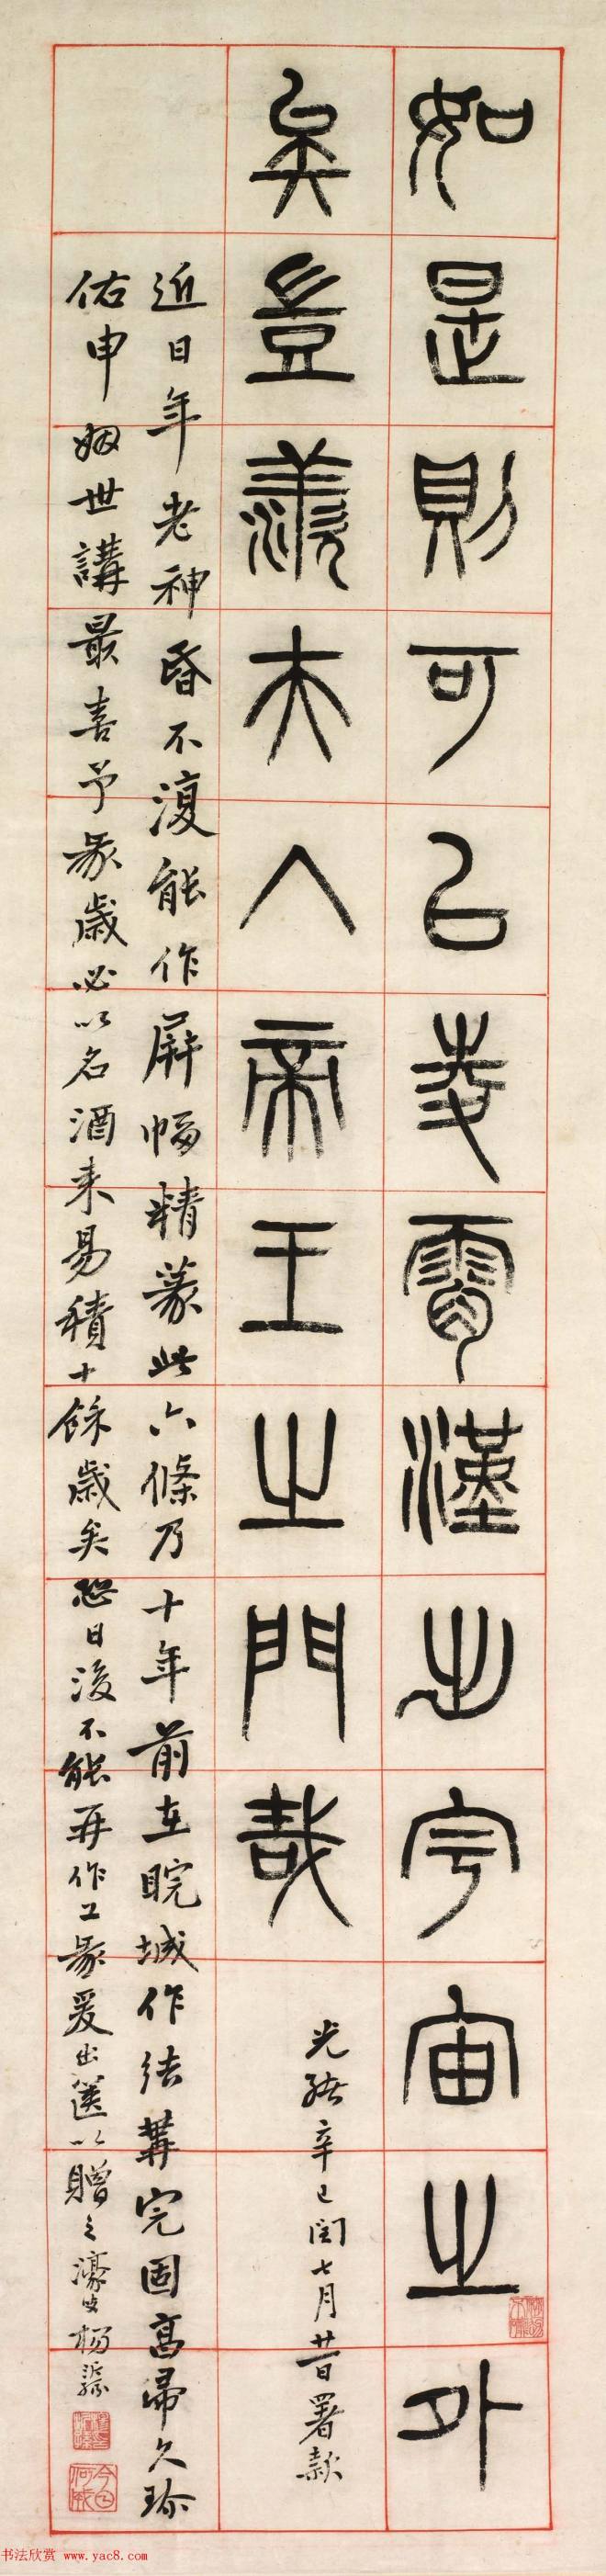 如是則可㠯凌霄漢出宇宙之外
矣豈羨夫入帝王之門哉
光緒辛巳閏七月昔署款
近日年老神昏不復能作屏幅精篆此六條乃十年前在睆城作結搆完固高帚久珎
佑申姻世講最喜予篆歲必以名酒來易積十餘歲矣恐日後不能再作工篆爰出篋以贈之濠叟楊沂孫
书法欣赏 www.yac8.com